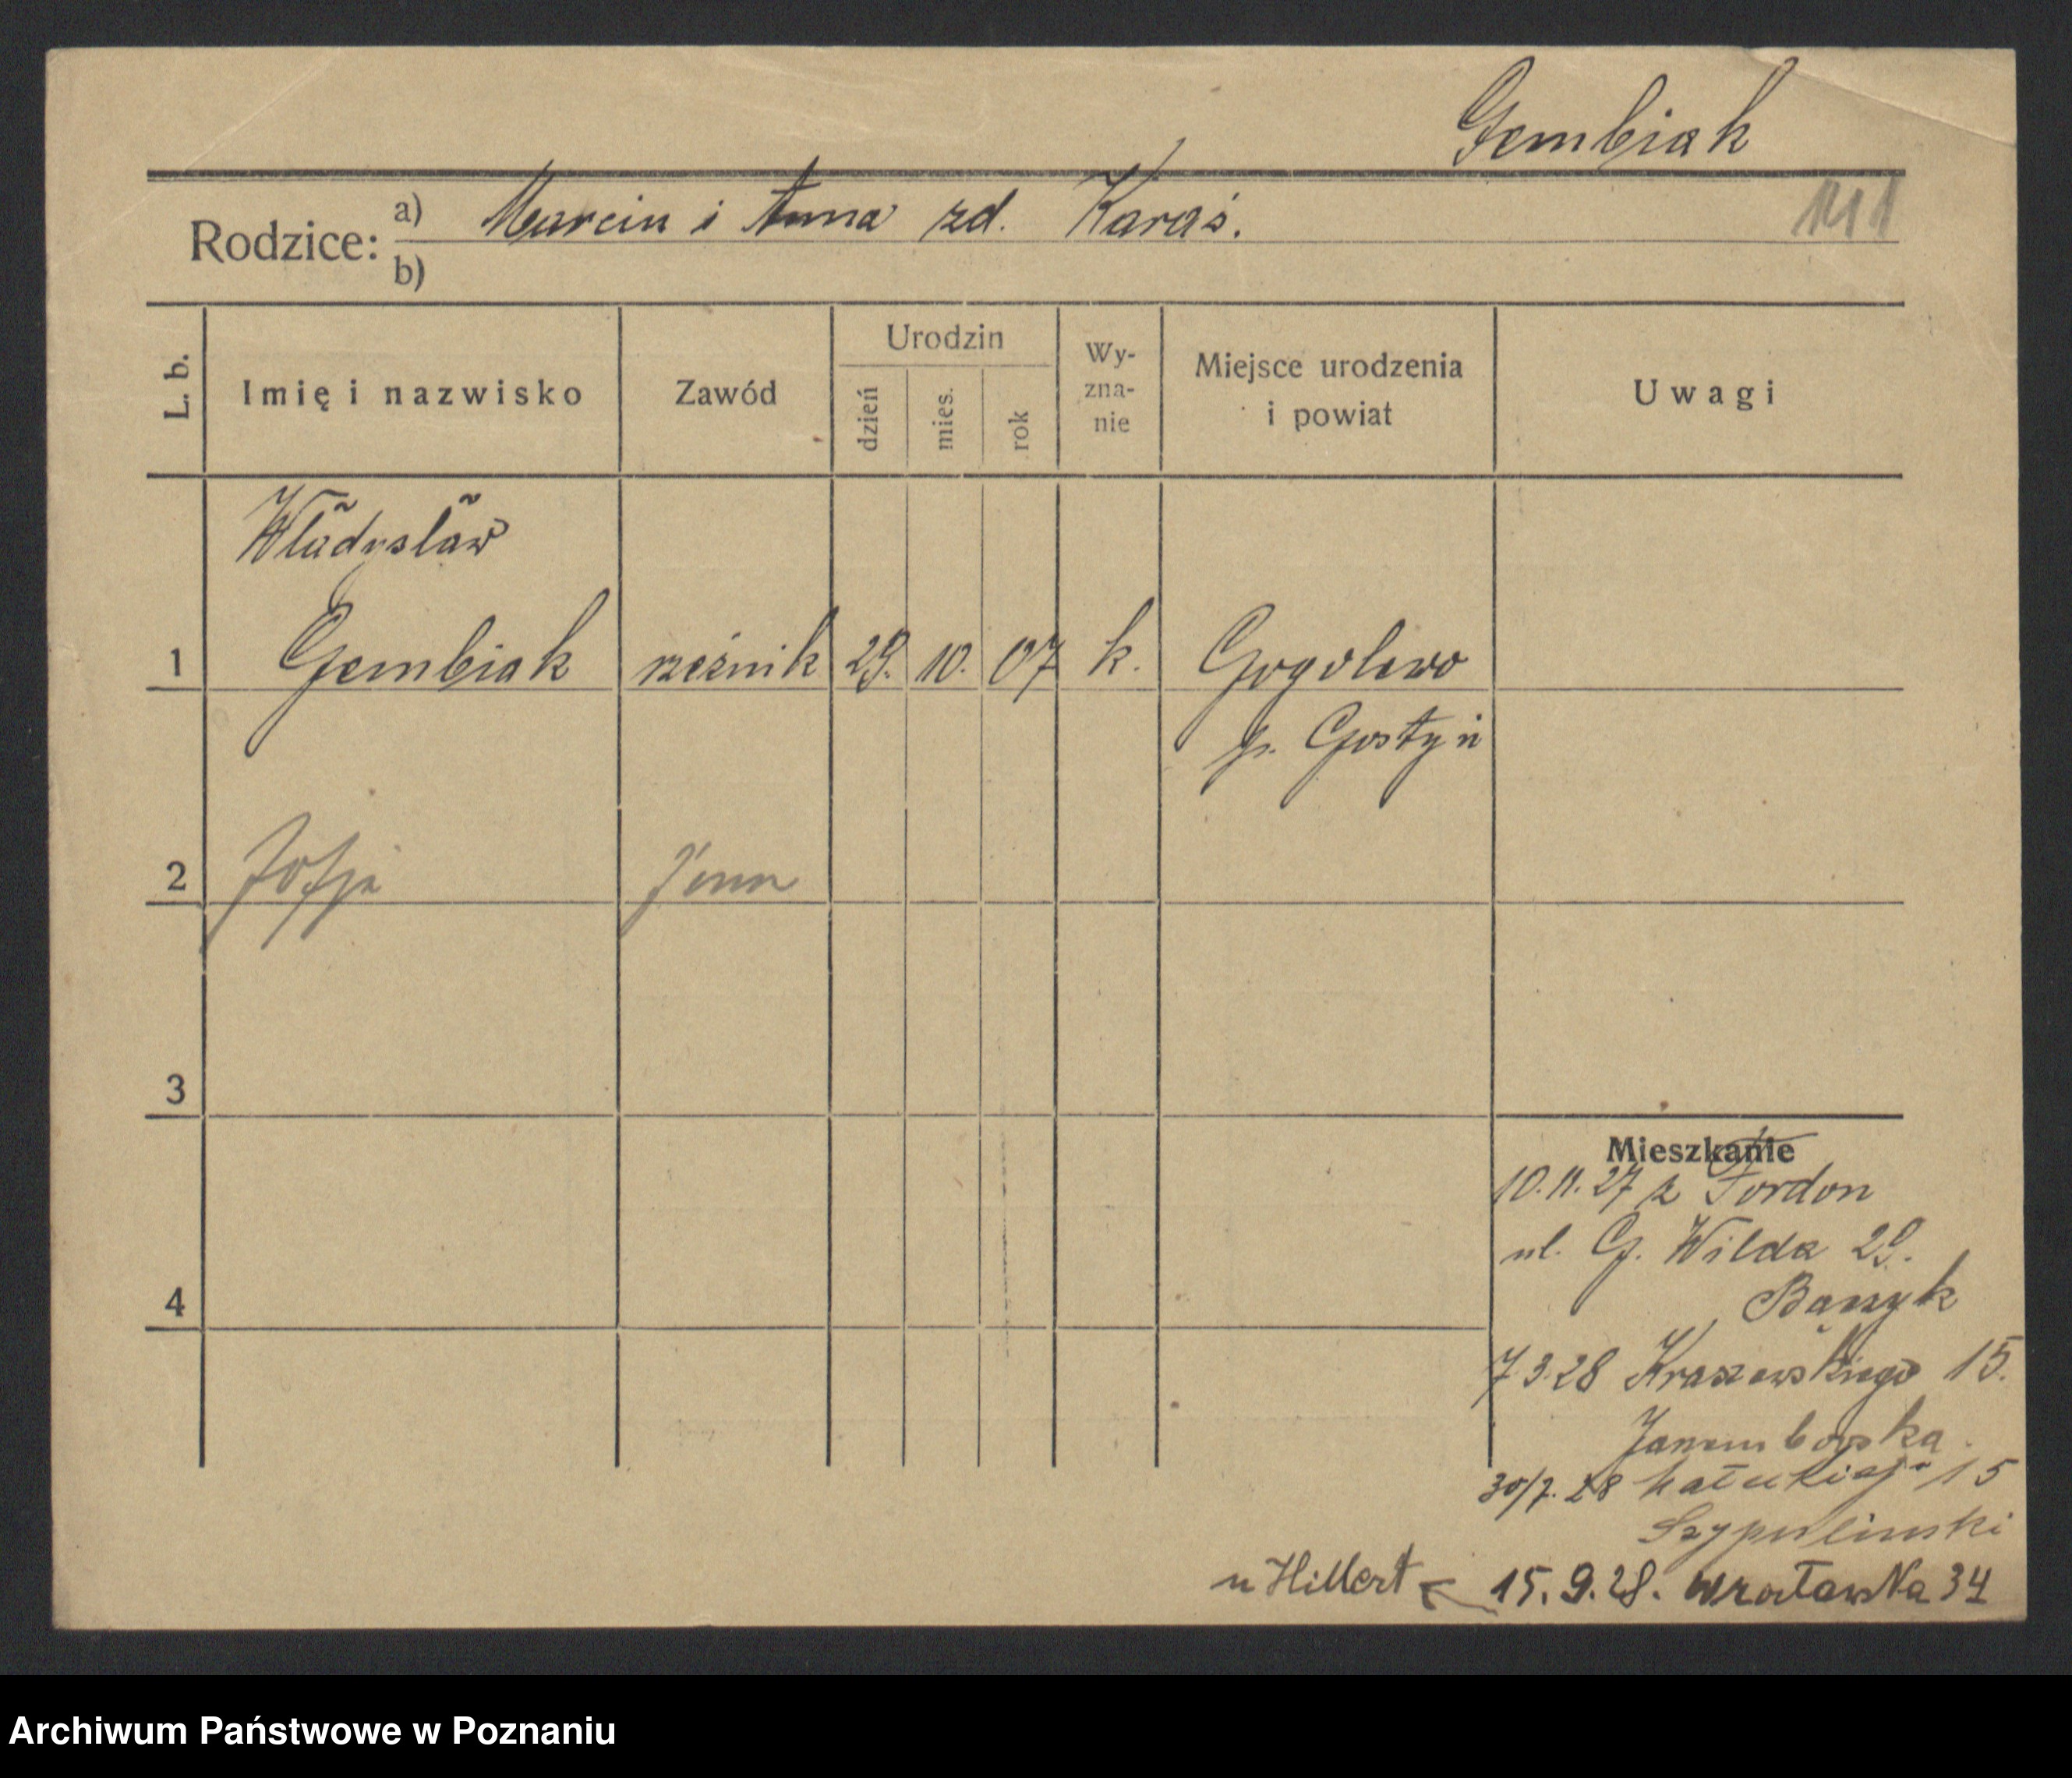 Gembiak
Rodzice: a) Marcin i Anna zd. Karaś.
b)
L. b.
Imię i nazwisko
Zawód
Urodzin
dzień
mies.
rok
Wy-
zna-
nie
Miejsce urodzenia
i powiat
Uwagi
Władysław
1 Gembiak rzeźnik 29. 10. 07 k. Gogolewo
p. Gostyń
2 Zofja
3
4
Mieszkanie
10.11.27 z Fordon
ul. G. Wilda 29.
7.3.28 Kraszewskiego 15.
30/7. 28 15
Szypulinski
u Hillert 15.9.28. Wrocławska 34
Archiwum Państwowe w Poznaniu